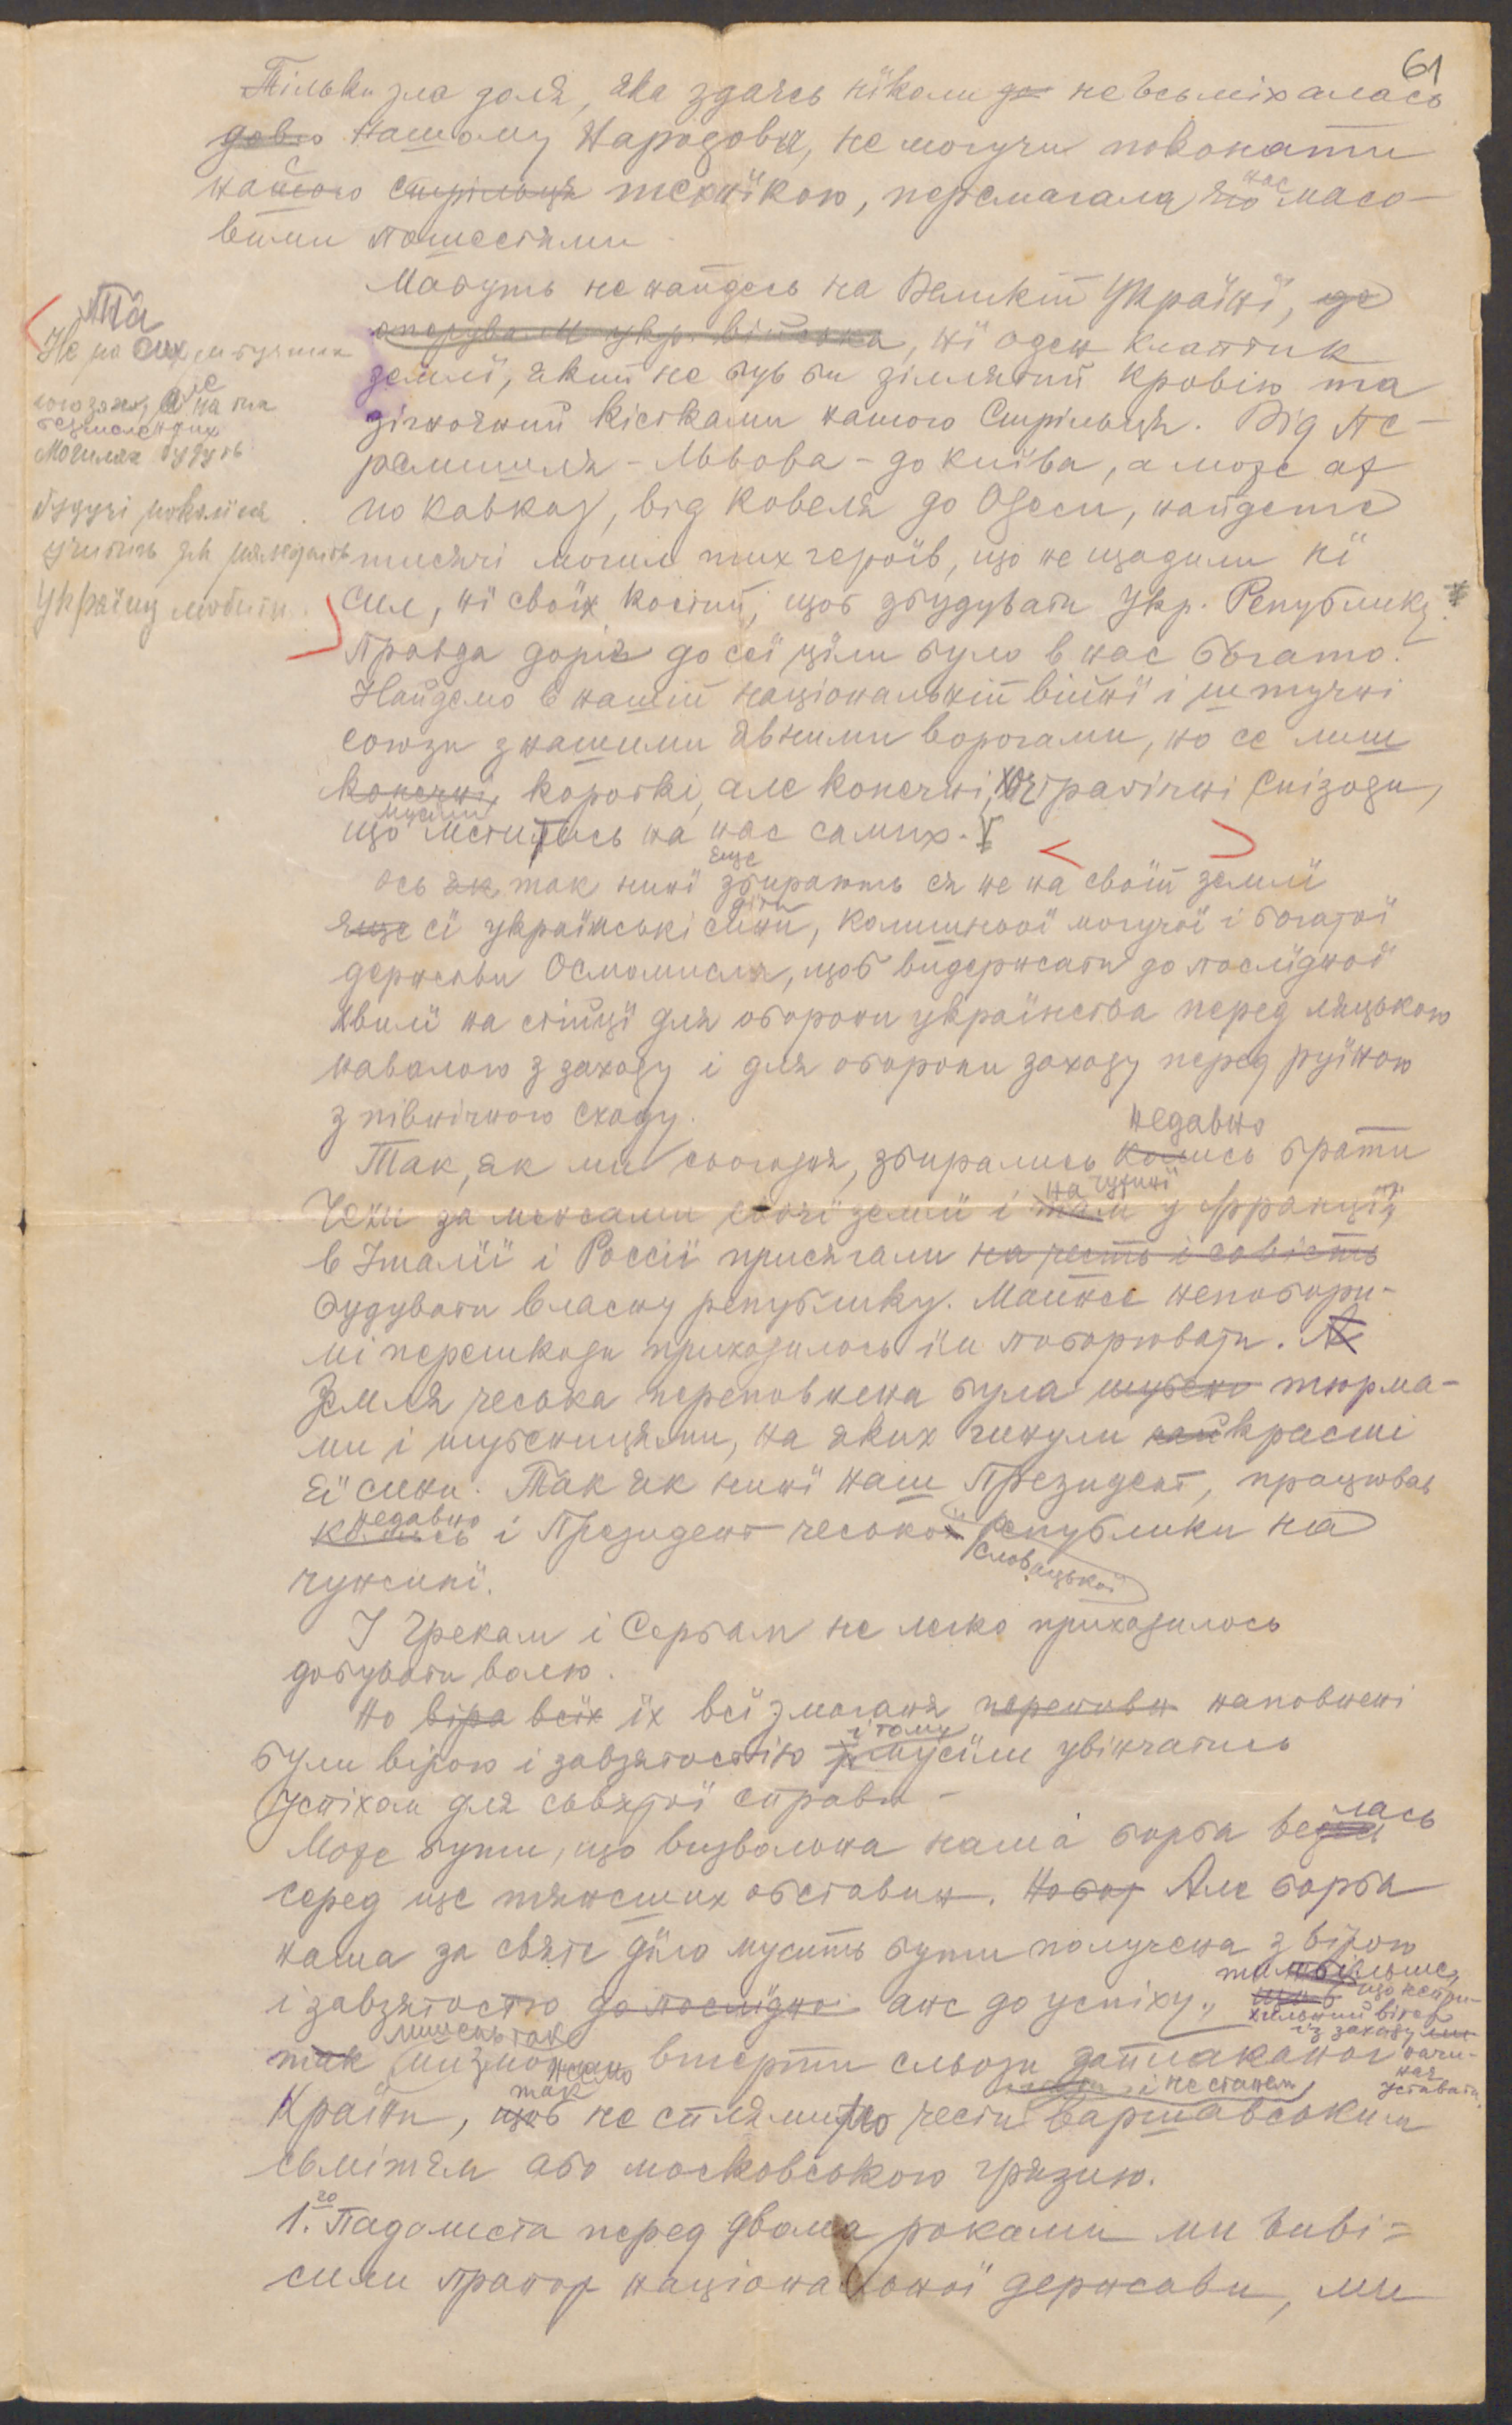 61
Тільки зла доля, яка здаєсь нїколи де не всьміхалась
довго нашому Народови, не могучи поконати
нашого стрільця технїкою, перемагала нас масо-
вими пошестями.
Мабуть не найдесь на Великій Українї, де
оперували укр. війська, нї оден клаптик
землї, який не був би зіллятий кровію та
зігноєний кістками нашого Стрільця. Від Пе-
ремишля - Львова - до Київа, а може аж
по Кавказ, від Ковеля до Одеси, найдете
тисячі могил тих героїв, що не щадили нї
сил, нї своїх костий, щоб збудувати Укр. Републику.
Та
Не на сих
союзах, але на
безіменних
Могилах будуть
будучі поколїня
учитись як
Україну любити.
Правда доріг до сеї ціли було в нас богато.
Найдемо в нашій національній війнї і штучні
союзи з нашими явними ворогами, но се лиш
конечні, короткі, але конечні, хоч трагічні епізоди,
що мусїли мститись на нас самих.
Ось як так нинї ще збирають ся не на своїй землї
яще сї українські сини діти, колишньої могучої і богатої
держави Осмомисла, щоб видержати до послїдної
хвилї на стійцї для оборони українства перед ляцькою
навалою з заходу і для оборони заходу перед руїною
з північного сходу.
Так, як ми сьогодня, збирались колись недавно брати
Чехи за межами своєї землї і там на чужинї у Франції,
в Італїї і Россії присягали на честь і совість
будувати власну републику. Майже непобори-
мі перешкоди приходилось їм поборювати. А
Земля чеська переповнена була шубено тюрма-
ми і шубеницями, на яких гинули найкрасші
єї сини. Так як нинї наш Президент, працював
колись недавно і Президент чеської словацької републики на
чужинї.
І Грекам і Сербам не легко приходилось
добувати волю.
Но віра всїх їх всї змаганя переповн наповнені
були вірою і завзятостію і тому мусїли увінчатись
успіхом для сьвятої справи -
Може бути, що визвольна наша борба велась
серед ще тяжших обставин. Но бор Але борба
наша за святе дїло мусить бути получена з вірою
і завзятостю до послїдно аж до успіху, тим більше, що неприхильний вітер із заходу начинає уставати.
так лишень так ми зможемо втерти сльози заплаканої
Країни, щоб так не сплямимо і не станем чести варшавським
сьмітям або московською грязию.
1.го Падолиста перед двома роками ми виві=
сили прапор національної держави, ми